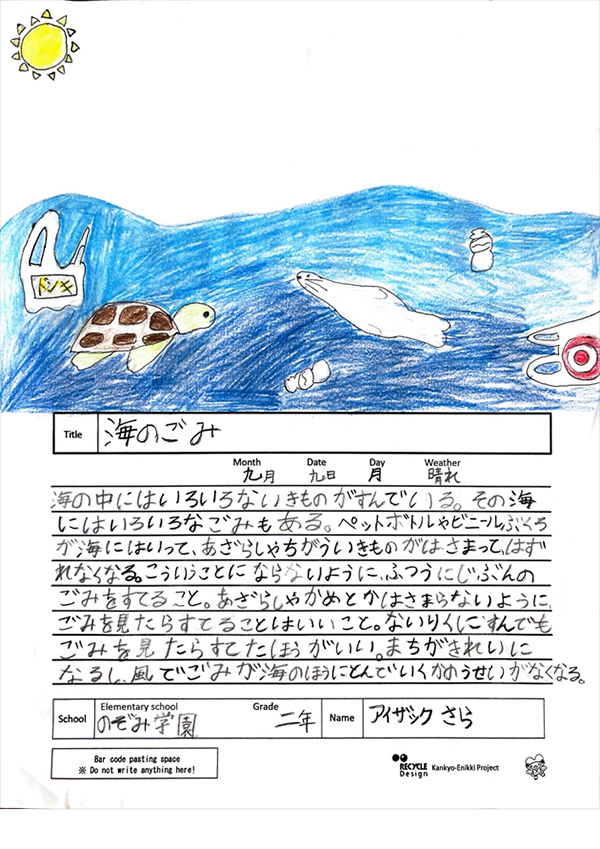 ドンキ
Title 海のごみ
Month Date Day Weather
九月 九日 月 晴れ
海の中にはいろいろないきものがすんでいる。その海
にはいろいろなごみもある。ペットボトルやビニールぶくろ
が海にはいって、あざらしやちがういきものがはさまって、はず
れなくなる。こういうことにならないように、ふつうにじぶんの
ごみをすてること。あざらしやかめとかはさまらないように、
ごみを見たらすてることはいいこと。ないりくにすんでても
ごみを見たらすてたほうがいい。まちがきれいに
なるし、風でごみが海のほうにとんでいくかのうせいがなくなる。
School Elementary school のぞみ学園 Grade 二年 Name アイザック さら
Bar code pasting space
※ Do not write anything here!
RECYCLE Design Kankyo-Enikki Project